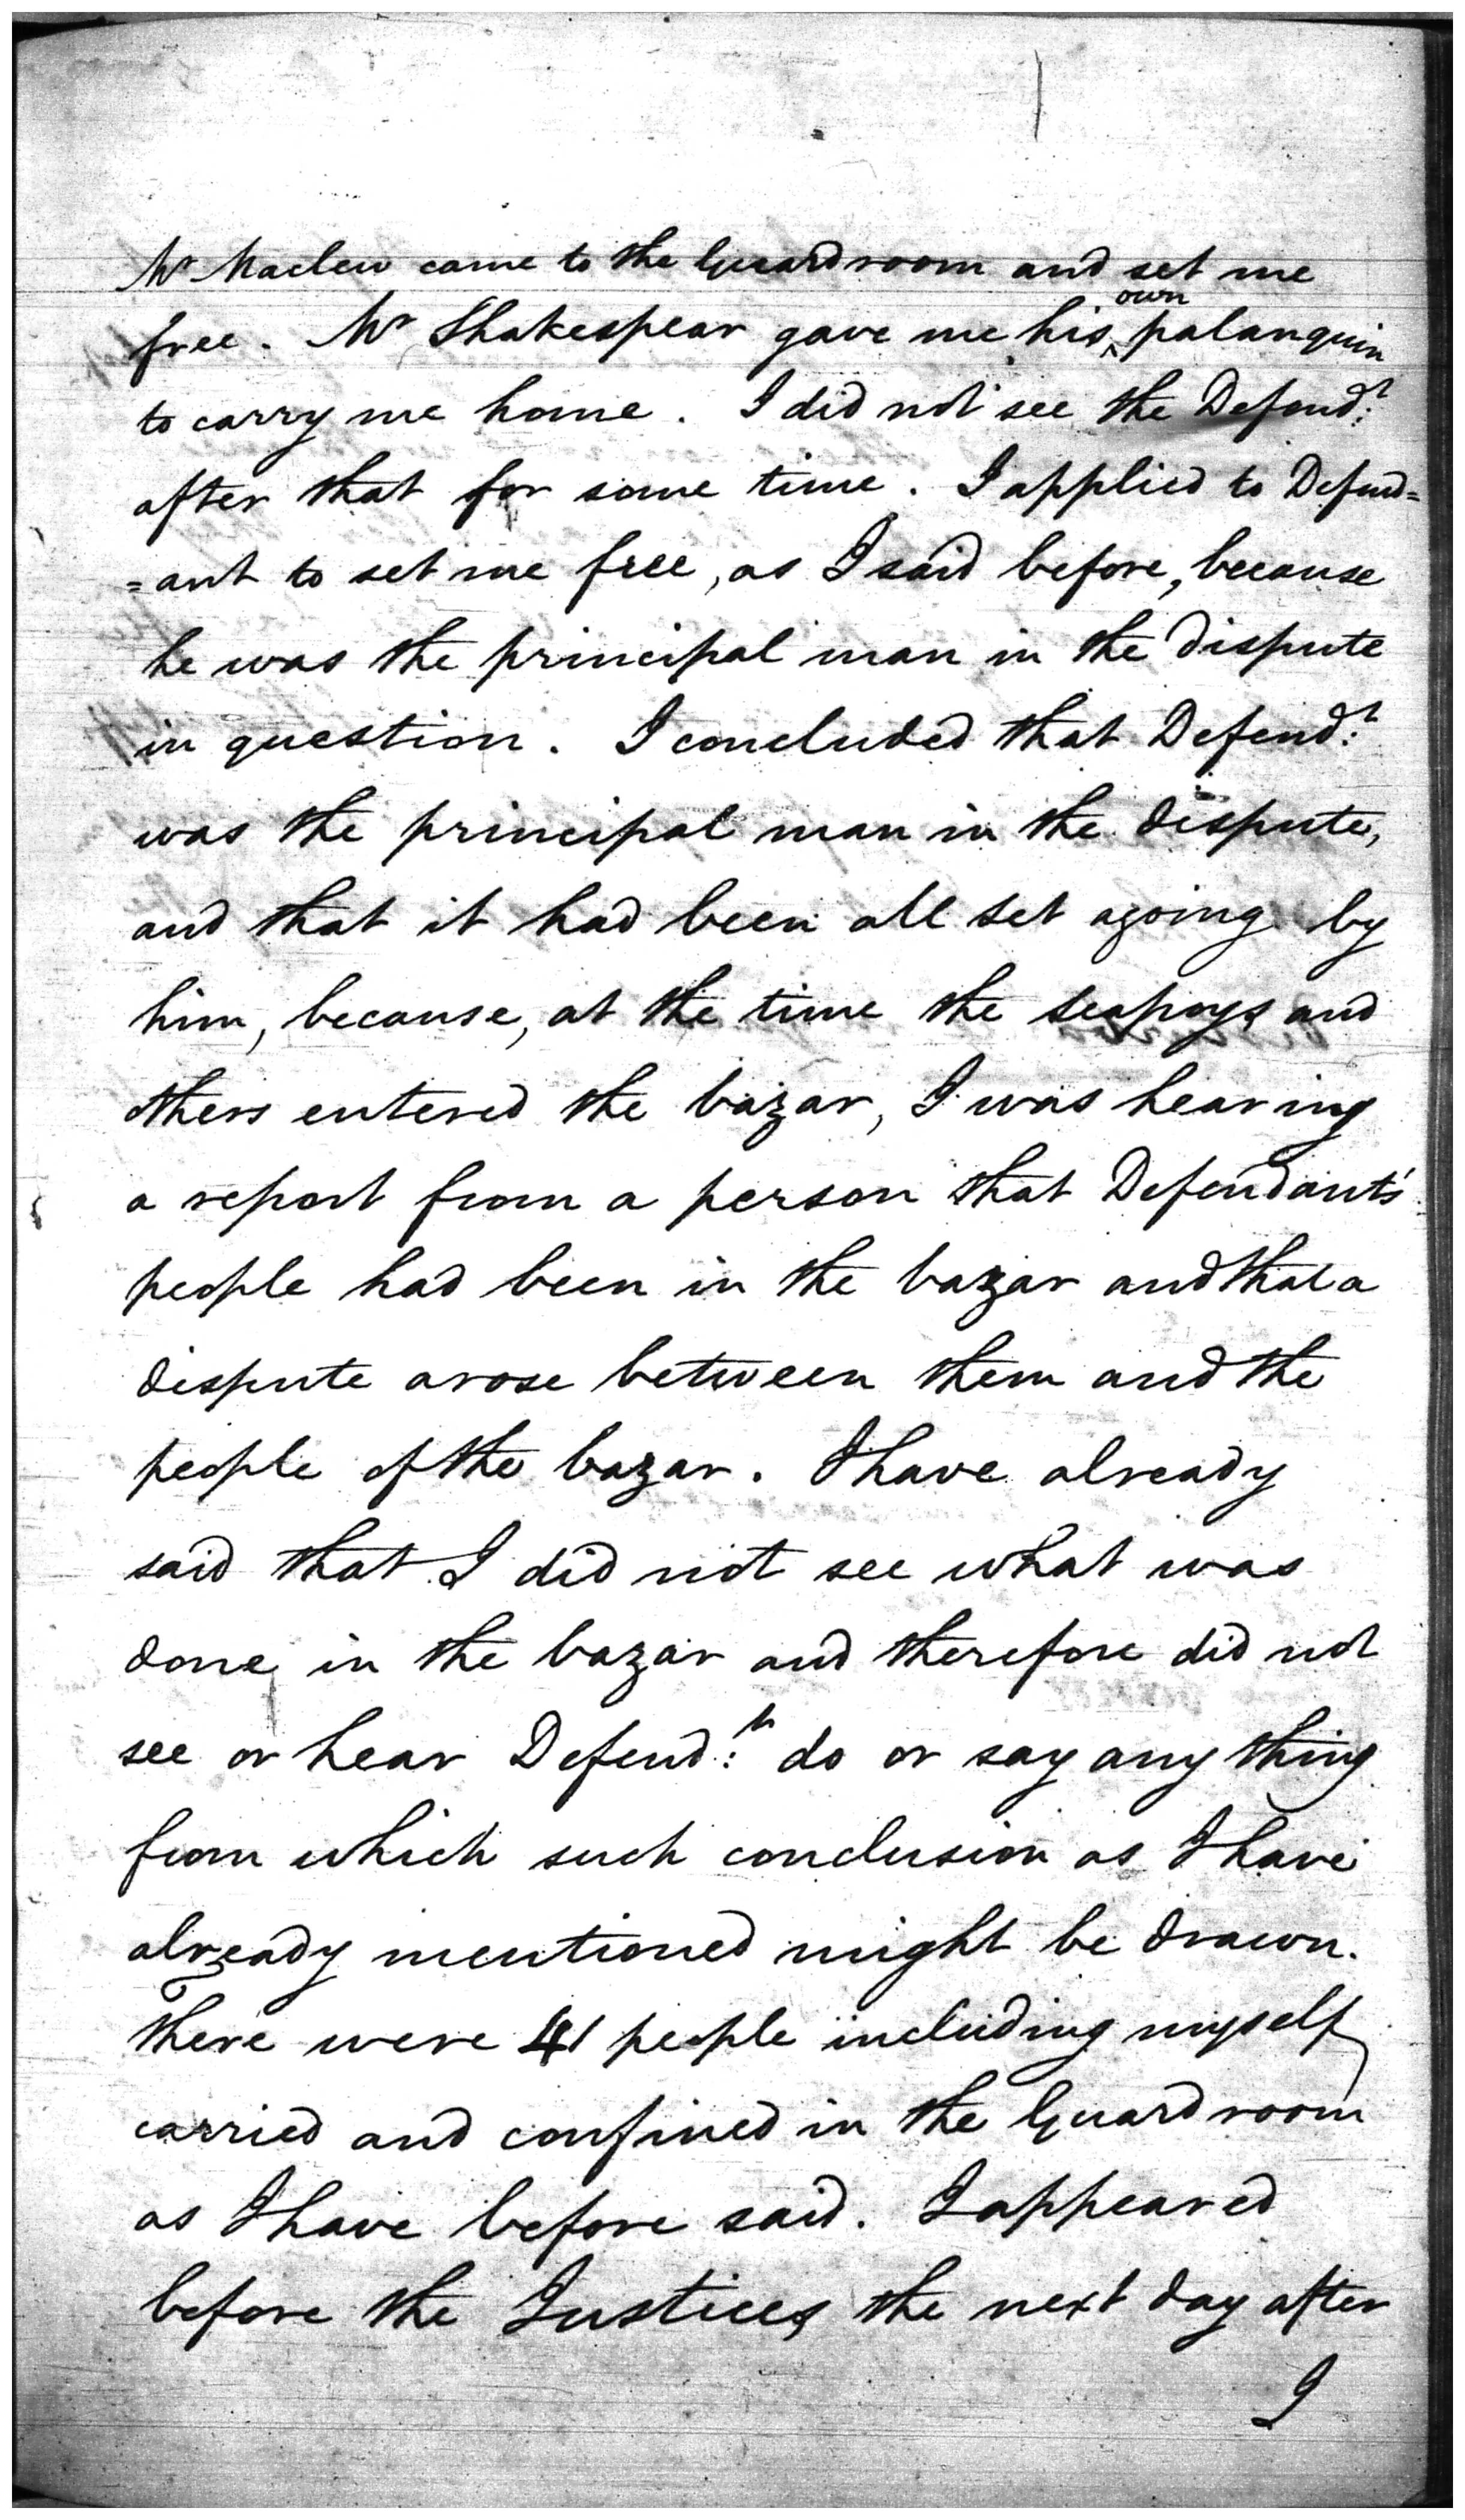 Mr Maclew came to the Guardroom and set me
free. Mr Shakespear gave me his own palanquin
to carry me home. I did not see the Defend:t
after that for some time. I applied to Defend=
=ant to set me free, as I said before, because
he was the principal man in the dispute
in question. I concluded that Defend:t
was the principal man in the dispute,
and that it had been all set agoing by
him, because, at the time the seapoys and
others entered the bazar, I was hearing
a report from a person that Defendants'
people had been in the bazar and that a
dispute arose between them and the
people of the bazar. I have already
said that I did not see what was
done in the bazar and therefore did not
see or hear Defend:t do or say any thing
from which such conclusion as I have
already mentioned might be drawn.
There were 41 people including myself
carried and confined in the Guardroom
as I have before said. I appeared
before the Justices the next day after
I